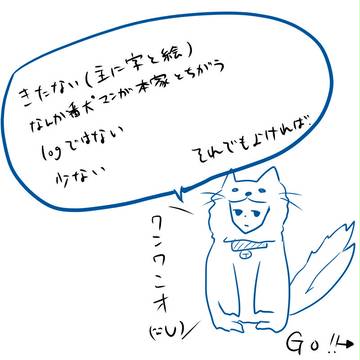 きたない(主に字と絵)
なんか番犬マンが本家とちがう
logではない
少ない
それでもよければ
ワンワンオ
(ﾆU)
Go!!→